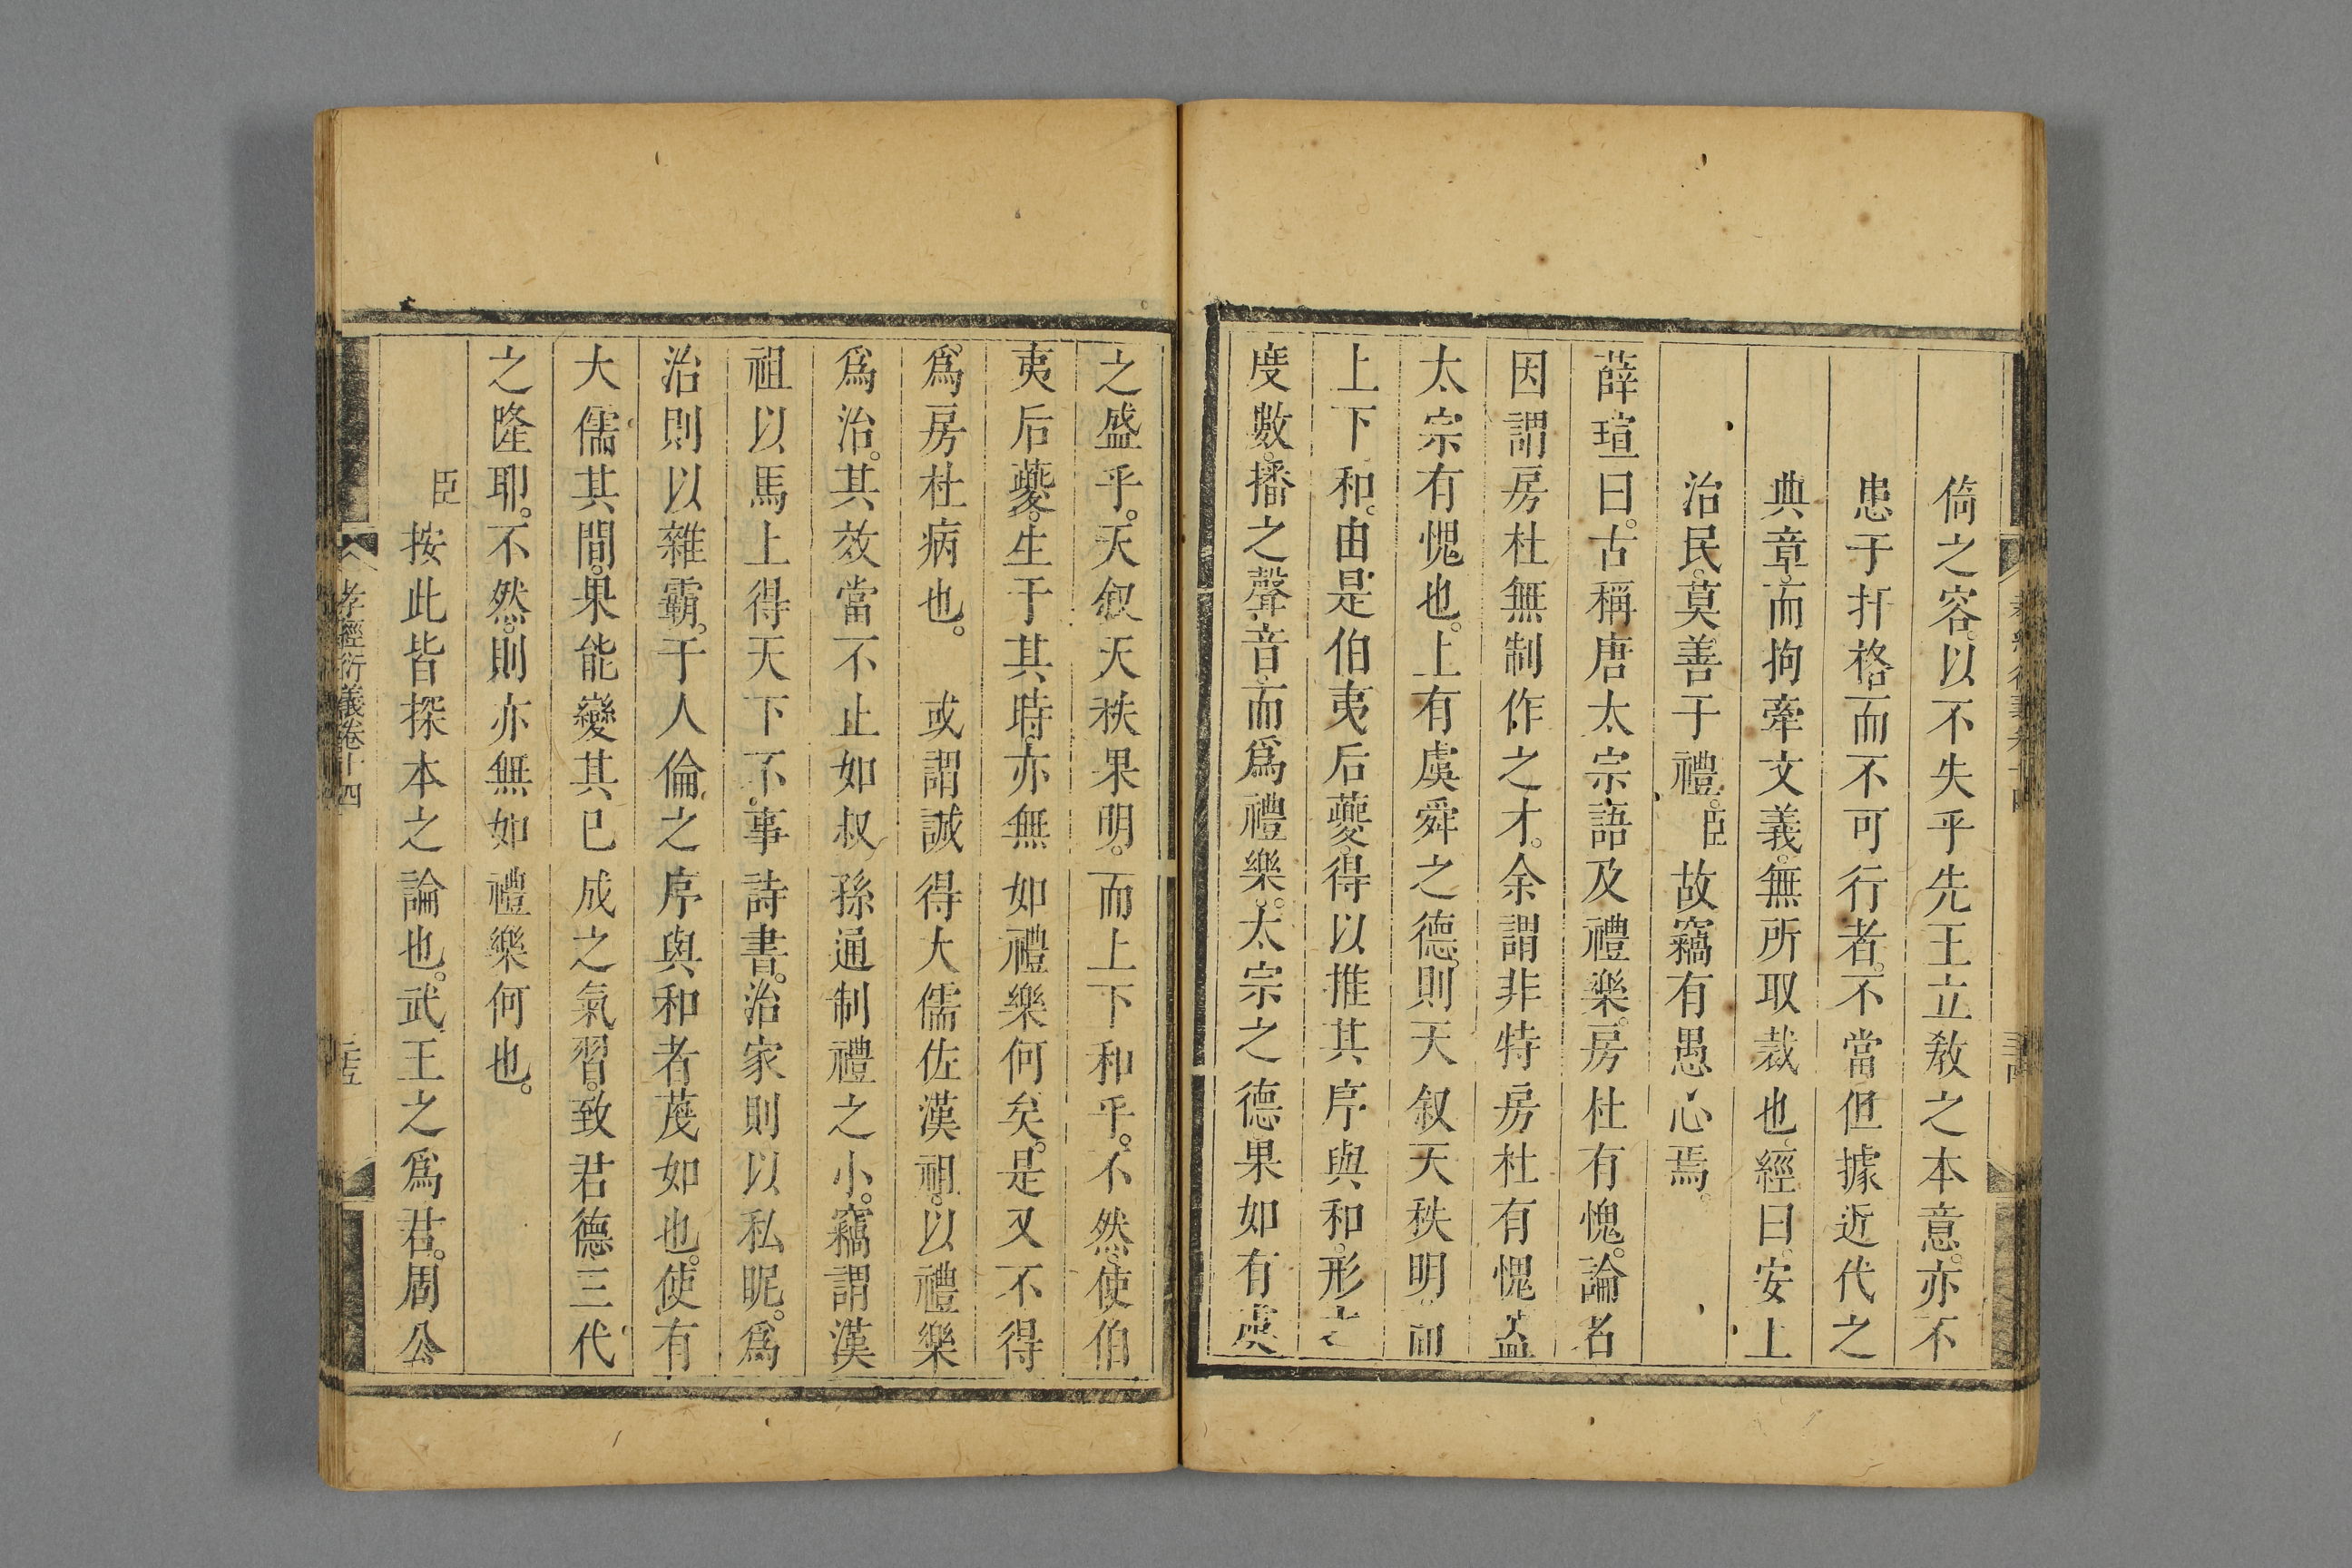 倚之容以不失乎先王立敎之本意亦不
患于扞格而不可行者不當但據近代之
典章而拘牽文義無所取裁也經曰安上
治民莫善于禮臣故竊有愚心焉
薛瑄曰古稱唐太宗語及禮樂房杜有愧論者
因謂房杜無制作之才余謂非特房杜有愧蓋
太宗有愧也上有虞舜之德則天叙天秩明而
上下和由是伯夷后夔得以推其序與和形之
度數播之聲音而爲禮樂太宗之德果如有虞
之盛乎天叙天秩果明而上下和乎不然使伯
夷后夔生于其時亦無如禮樂何矣是又不得
爲房杜病也　或謂誠得大儒佐漢祖以禮樂
爲治其效當不止如叔孫通制禮之小竊謂漢
祖以馬上得天下不事詩書治家則以私昵爲
治則以雜霸于人倫之序與和者茂如也使有
大儒其間果能變其已成之氣習致君德三代
之隆耶不然則亦無如禮樂何也
臣按此皆探本之論也武王之爲君周公
孝經衍義卷十四